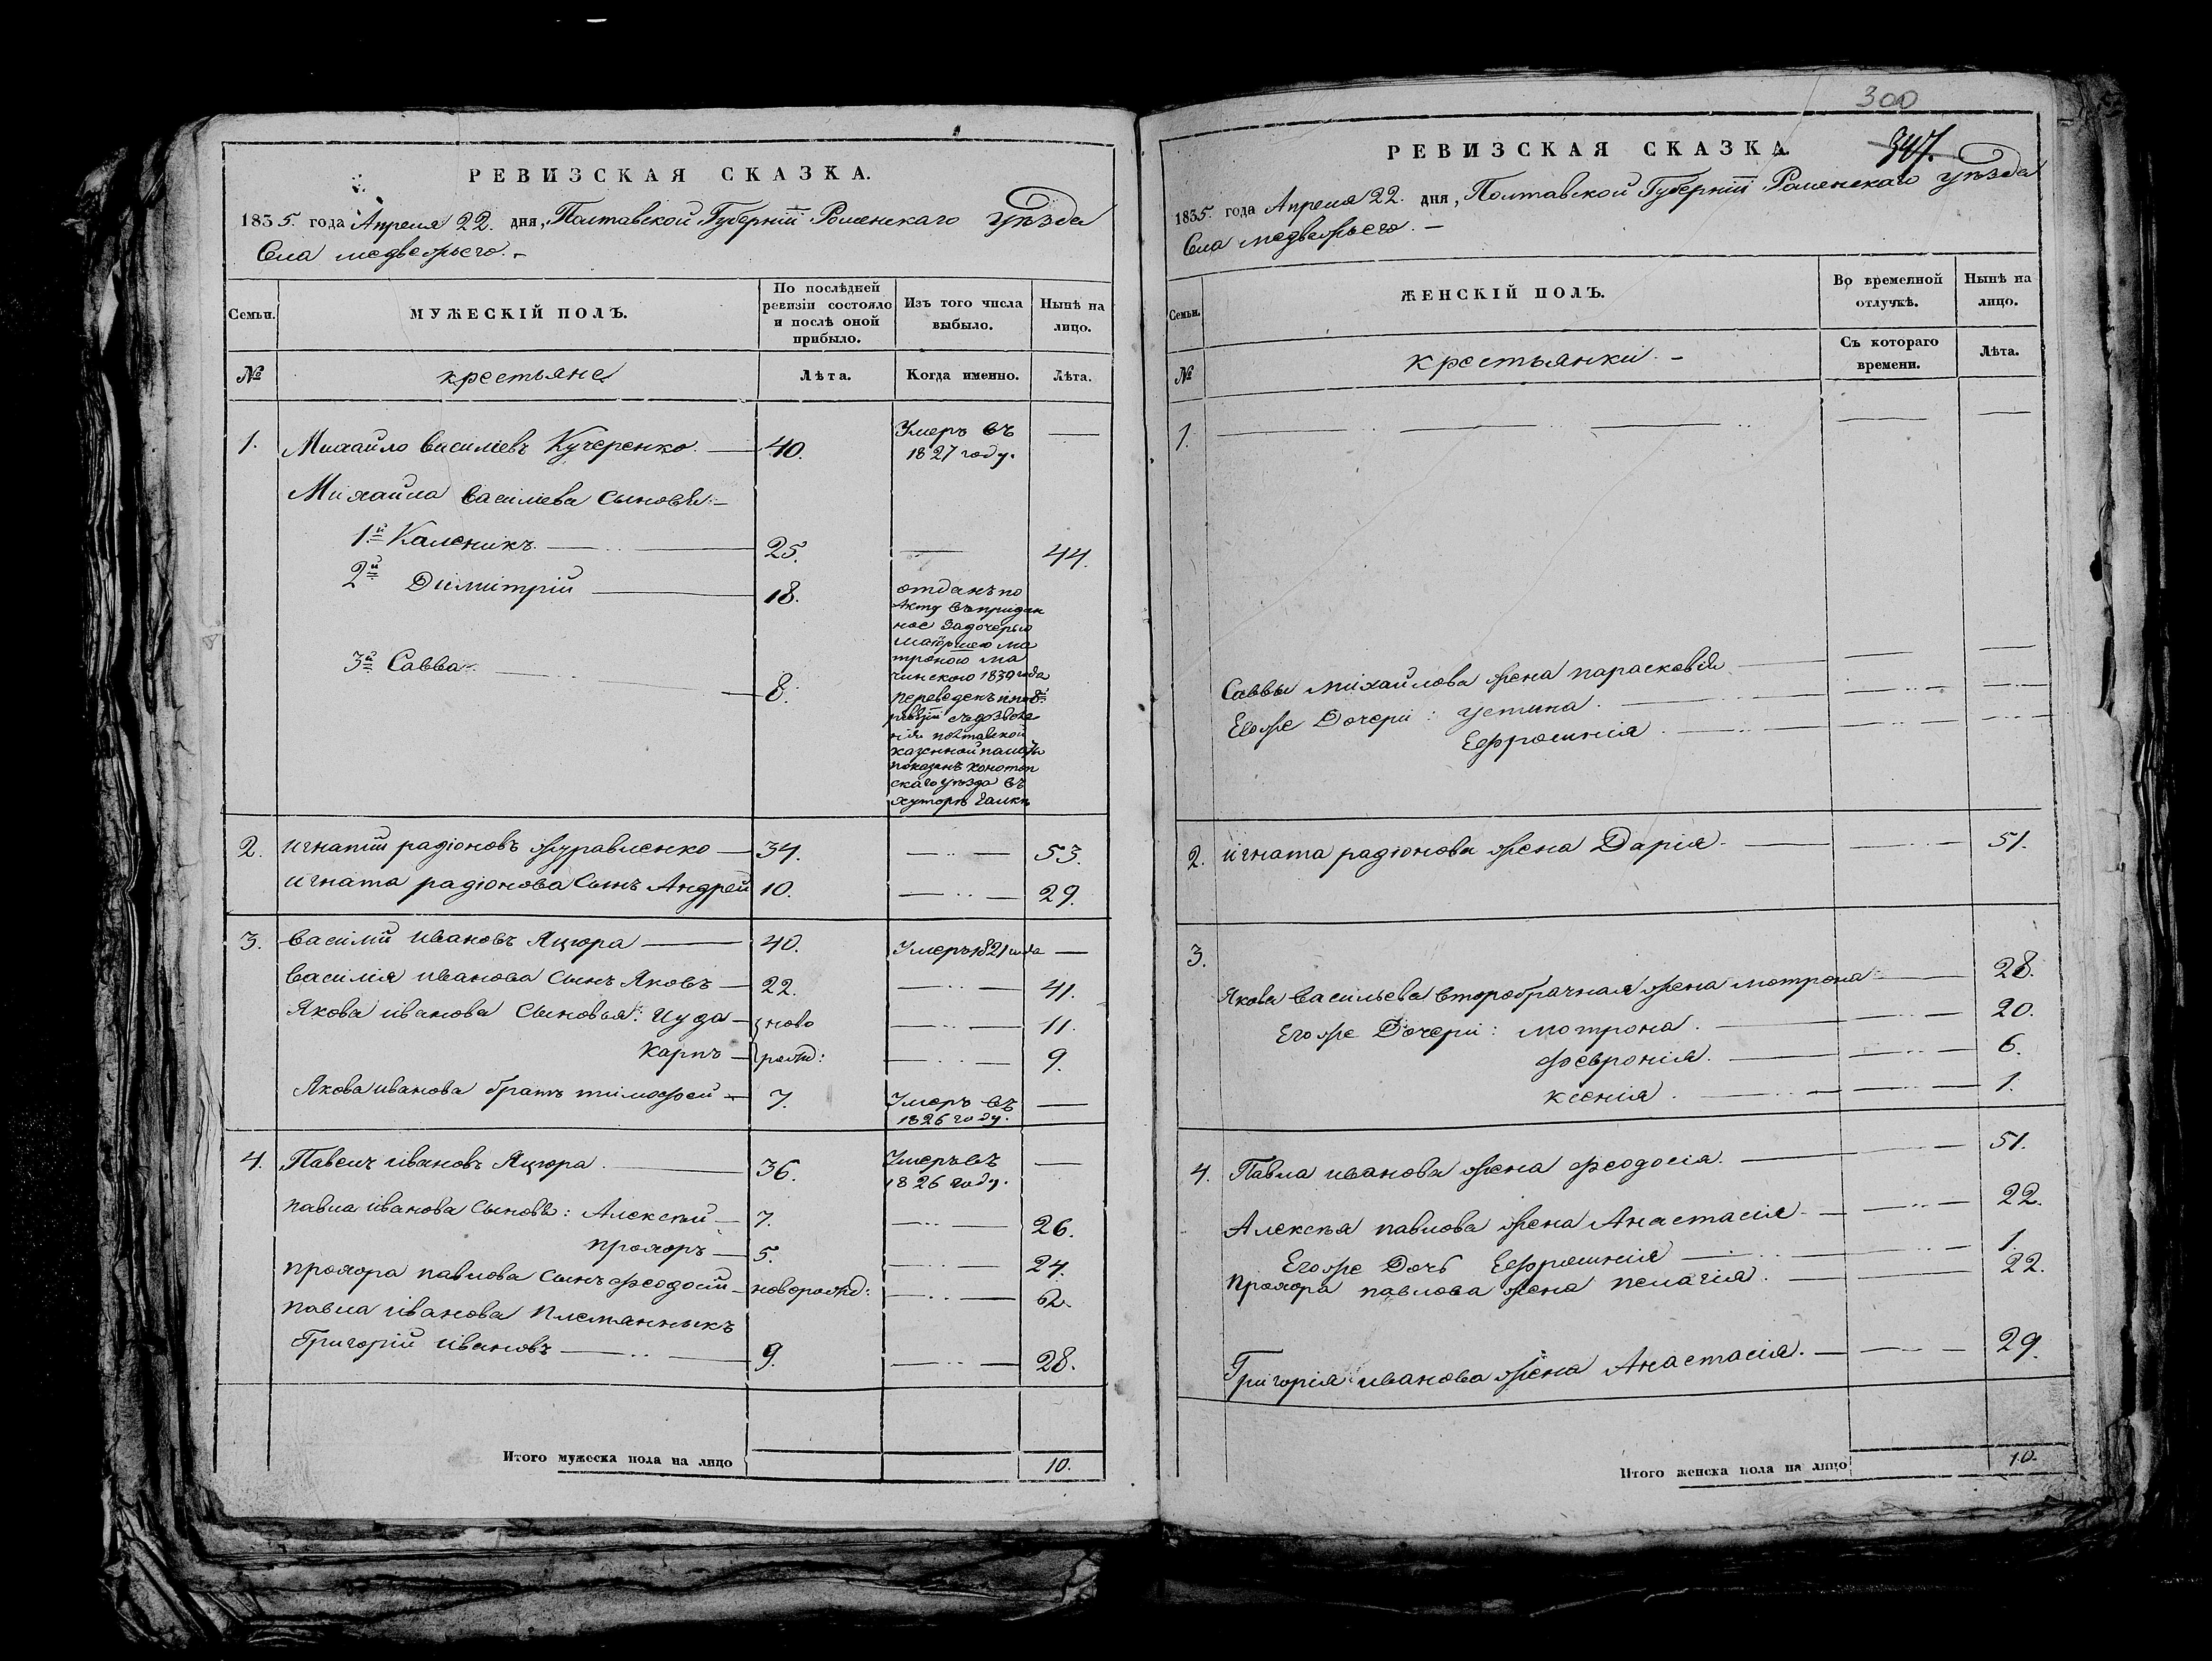 РЕВИЗСКАЯ СКАЗКА.
1835. года Апреля 22. дня, Полтавской Губерніи Роменскаго Уезда
Села медвежьего. –
Семьи. МУЖЕСКІЙ ПОЛЪ. По послѣдней ревизіи состояло и послѣ оной прибыло. Изъ того числа выбыло. Нынѣ на лицо.
№ крестьяне Лѣта. Когда именно. Лѣта.
1. Михайло василіевъ Кучеренко. — 40. Умеръ въ 1827 году. —
Михайла василіева сыновья: –
1й Каленикъ. — 25. — 44.
2й Димитрій — 18.
3й Савва. — 8.
отданъ по
Акту въ придан
ное за дочерью
ма
троною ма
чинскою 1830 года
переведенъ
ревізіи съ дозволе
нія полтавской
казенной палаты
показанъ конотоп
скаго уезда въ
хуторе
2. игнатій радіоновъ журавленко — 34. — 53.
игната радіонова Сынъ Андрей 10. — 29.
3. василій ивановъ Яцюра — 40. Умеръ 1821 года —
василія иванова Сынъ Яковъ — 22. — 41.
Якова иванова Сыновья: Иуда — ново — 11.
карпъ — рожд: — 9.
Якова иванова братъ тимофей — 7. Умеръ въ 1826 году. —
4. Павелъ ивановъ Яцюра. — 36. Умеръ въ 1826 году. —
павла иванова Сыновья: Алексій — 7. — 26.
прохоръ — 5. — 24.
прохора павлова Сынъ феодосій — новорожд: — 2.
павла іванова племянныкъ
Григорій ивановъ — 9. — 28.
Итого мужеска пола на лицо 10.
300
347.
РЕВИЗСКАЯ СКАЗКА.
1835. года Апреля 22. дня, Полтавской Губерніи Роменскаго уезда
Села медвежьего. –
Семьи. ЖЕНСКІЙ ПОЛЪ. Во временной отлучкѣ. Нынѣ на лицо.
№ крестьянки. – Съ котораго времени. Лѣта.
1. — — —
Саввы михайлова жена парасковія — — —
Егоже Дочери: устина. — — —
Ефросинія. — — —
2. игната радіонова жена Дарія. — — 51.
3.
Якова васильева второбрачная жена мотрона — 28.
Егоже Дочери: мотрона. — 20.
февронія. — 6.
ксенія. — 1.
4. Павла иванова жена феодосія. — 51.
Алексея павлова жена Анастасія — 22.
Егоже Дочь Ефросинія — 1.
прохора павлова жена пелагія. — 22.
Григорія иванова жена Анастасія. — 29.
Итого женска пола на лицо 10.